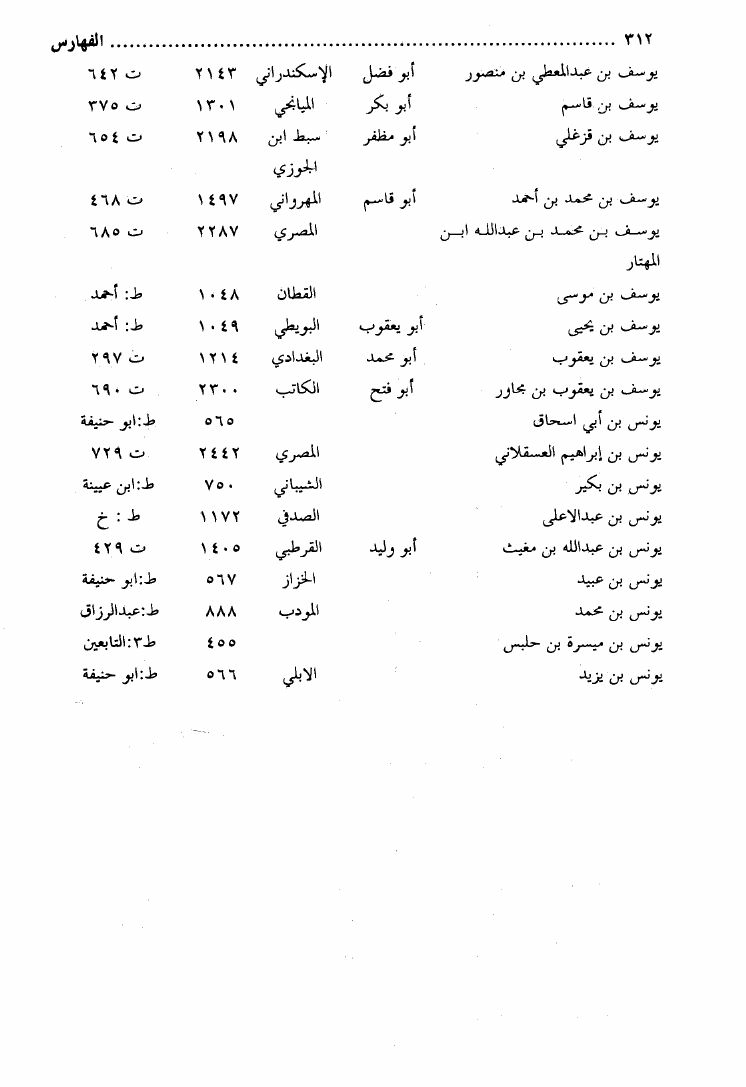 ٣١٢ ........................................ الفهارس
يوسف بن عبدالمعطي بن منصور أبو فضل الإسكندراني ٢١٤٣ ت ٦٤٢
يوسف بن قاسم أبو بكر الميانجي ١٣٠١ ت ٣٧٥
يوسف بن قزغلي أبو مظفر سبط ابن ٢١٩٨ ت ٦٥٤
الجوزي
يوسف بن محمد بن أحمد أبو قاسم المهرواني ١٤٩٧ ت ٤٦٨
يوسف بن محمد بن عبدالله ابن المصري ٢٢٨٧ ت ٦٨٥
المهتار
يوسف بن موسى القطان ١٠٤٨ ط: أحمد
يوسف بن يحيى أبو يعقوب البويطي ١٠٤٩ ط: أحمد
يوسف بن يعقوب أبو محمد البغدادي ١٢١٤ ت ٢٩٧
يوسف بن يعقوب بن مجاور أبو فتح الكاتب ٢٣٠٠ ت ٦٩٠
يونس بن أبي اسحاق ٥٦٥ ط:ابو حنيفة
يونس بن إبراهيم العسقلاني المصري ٢٤٤٢ ت ٧٢٩
يونس بن بكير الشيباني ٧٥٠ ط:ابن عيينة
يونس بن عبدالاعلى الصدفي ١١٧٢ ط : خ
يونس بن عبدالله بن مغيث أبو وليد القرطبي ١٤٠٥ ت ٤٢٩
يونس بن عبيد الخزاز ٥٦٧ ط:ابو حنيفة
يونس بن محمد المودب ٨٨٨ ط:عبدالرزاق
يونس بن ميسرة بن حلبس ٤٥٥ ط٣:التابعين
يونس بن يزيد الابلي ٥٦٦ ط:ابو حنيفة